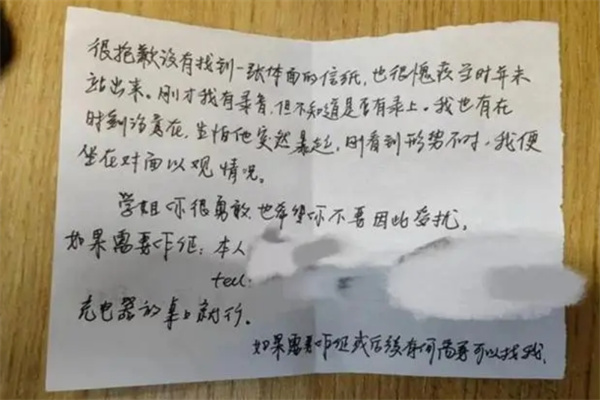 很抱歉没有找到一张体面的信纸，也很愧疚当时并未
站出来。刚才我有录音，但不知道是否有录上。我也有在
时刻注意在，生怕他突然暴起，刚看到形势不对，我便
坐在对面以观情况。
学姐你很勇敢也希望你不要因此受扰。
如果需要作证：本人
tell：
充电器的桌上就行。
如果需要作证或后续有何需要可以找我。